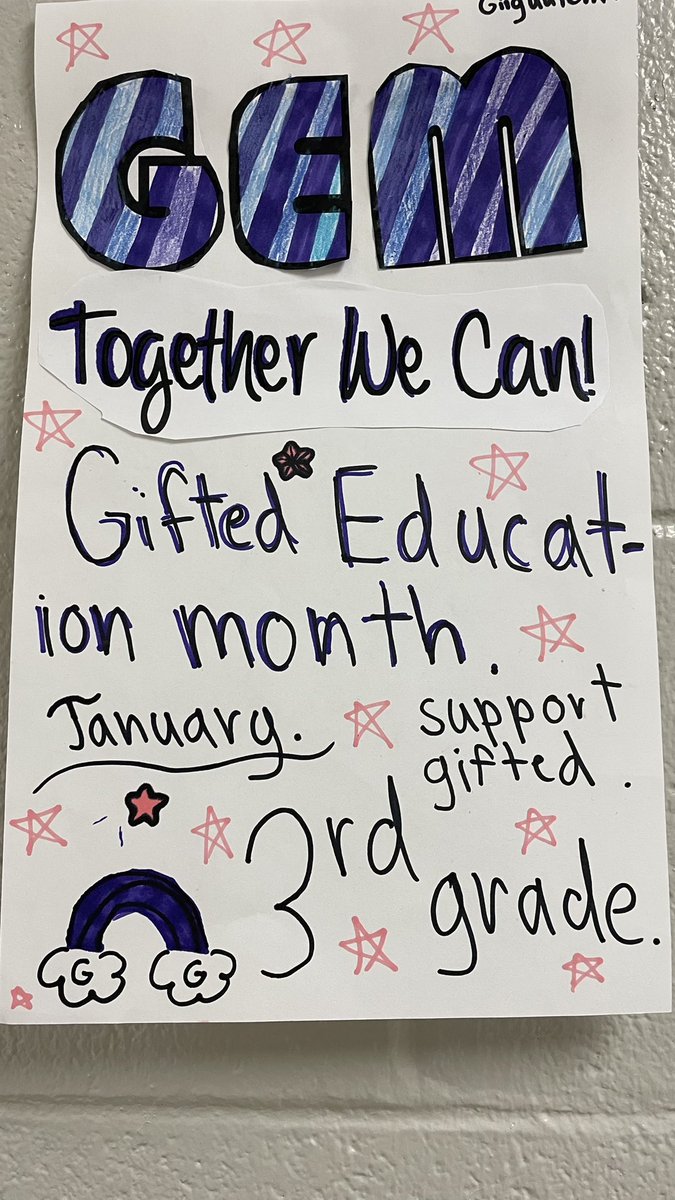 GEM
Together We Can!
Gifted Educat-
ion month.
January.
support
gifted.
3rd
grade.
G
G